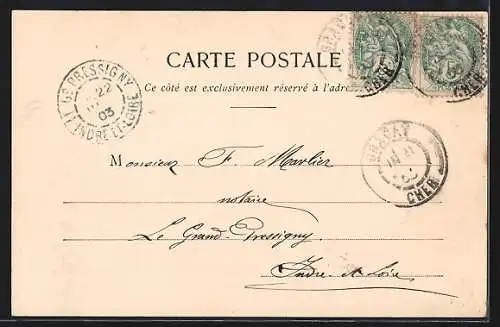 CARTE POSTALE
Ce côté est exclusivement réservé à l'adre
GD PRESSIGNY
22
03
INDRE-ET-LOIRE
CHER
CHER
Monsieur F. Marlier
notaire
Le Grand-Pressigny
Indre-et-Loire
CHER